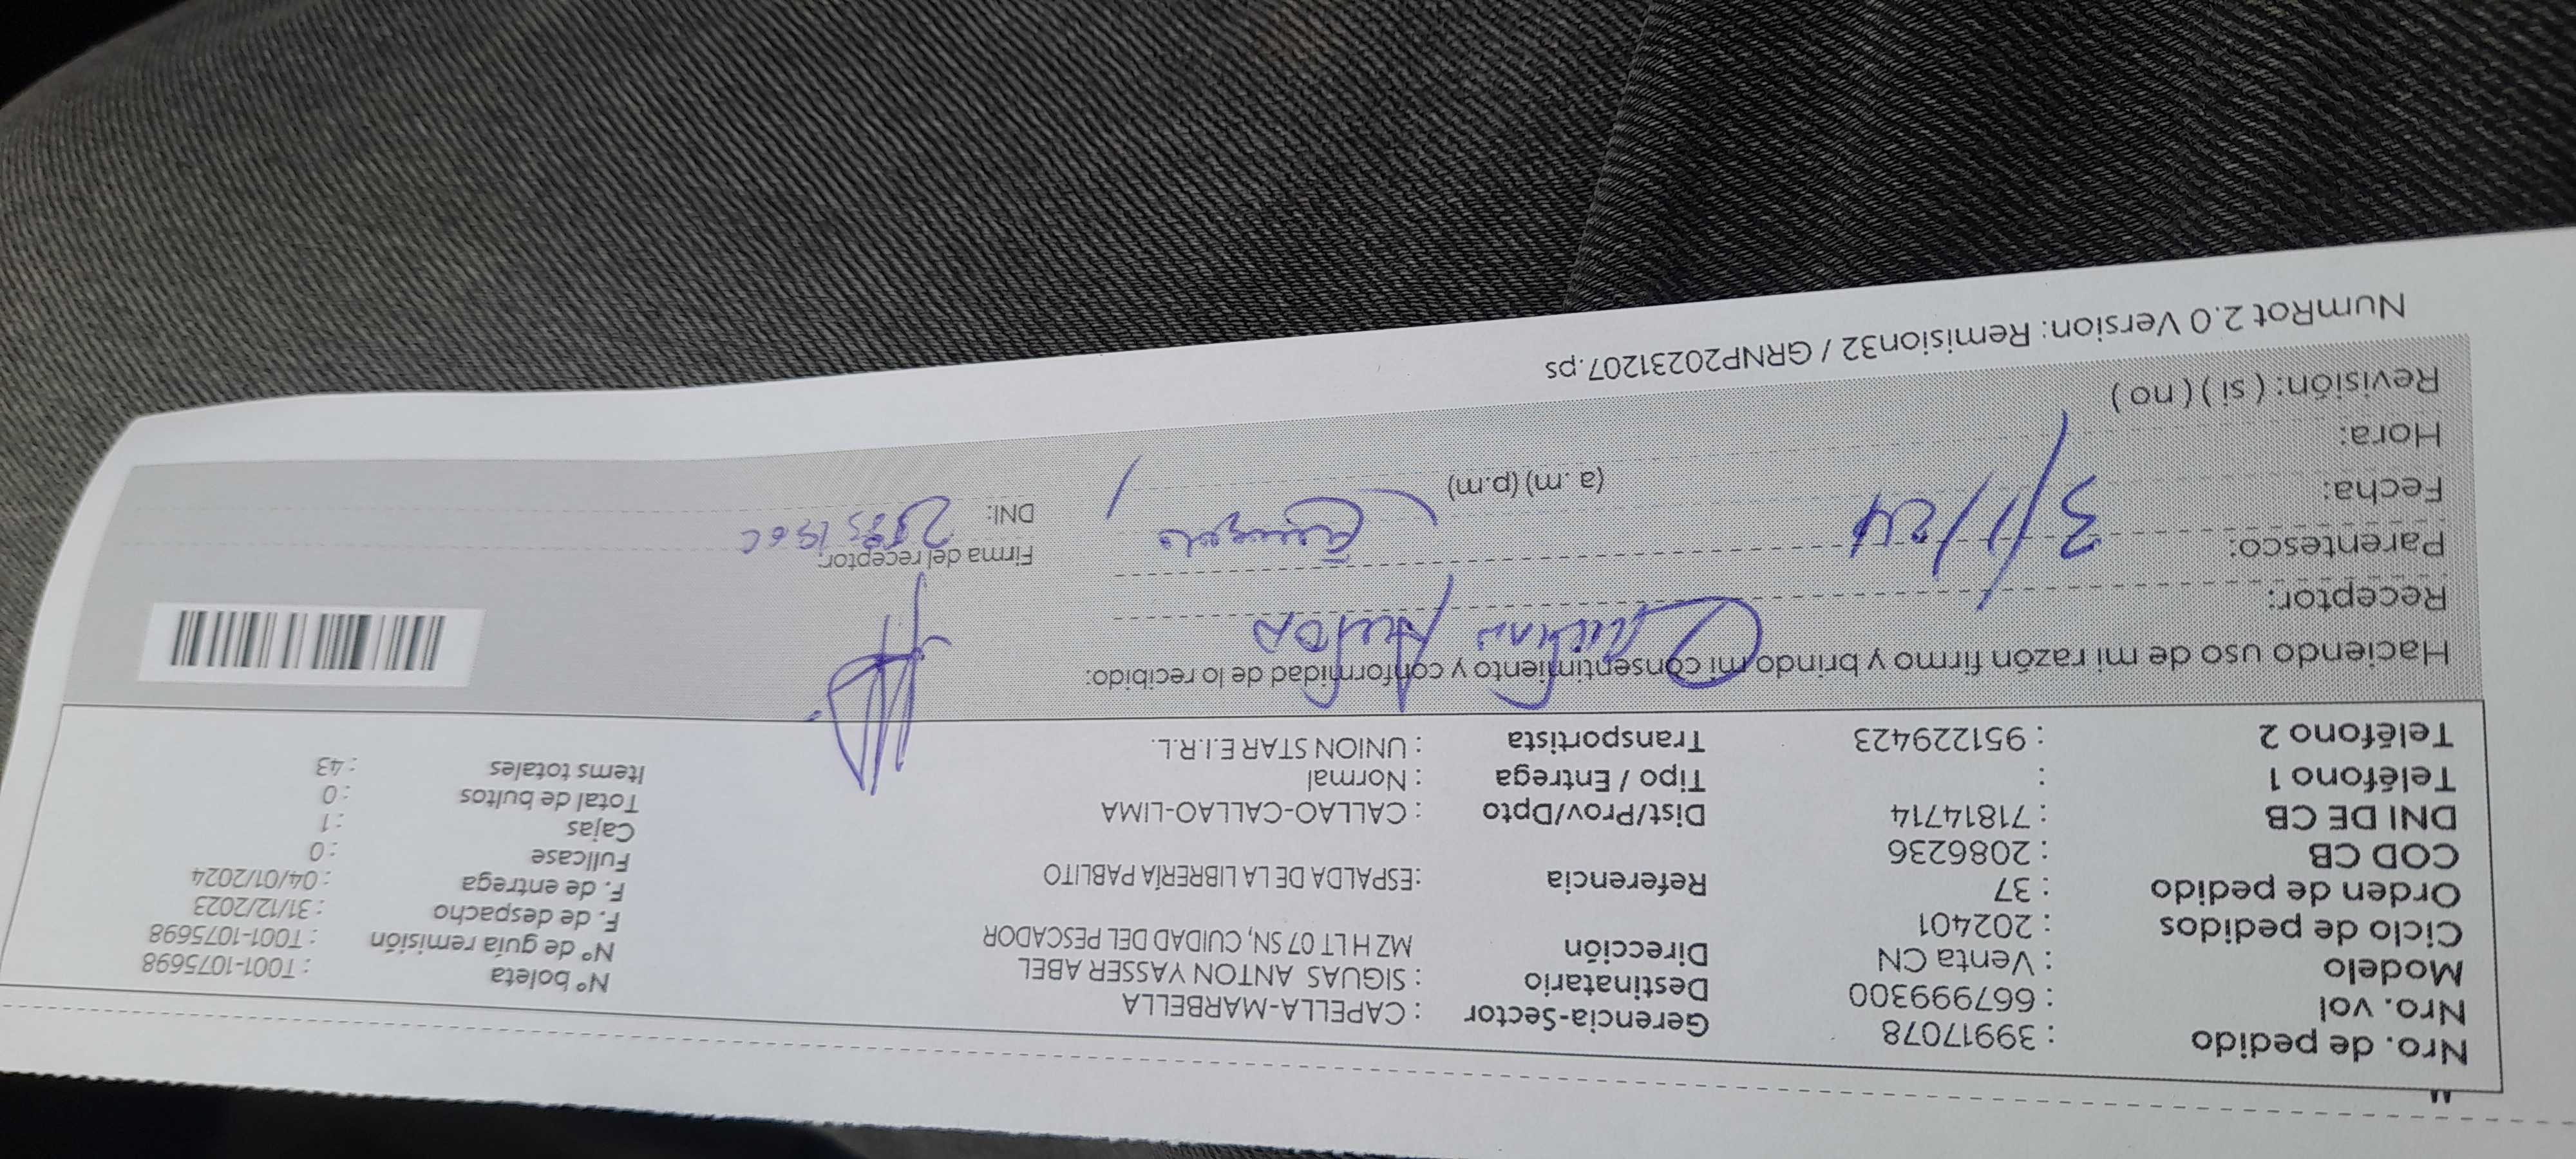 Nro. de pedido : 39917078 Gerencia-Sector : CAPELLA-MARBELLA Nº boleta : T001-1075698
Nro. vol : 667999300 Destinatario : SIGUAS ANTON YASSER ABEL Nº de guía remisión : T001-1075698
Modelo : Venta CN Dirección MZ H LT 07 SN, CUIDAD DEL PESCADOR F. de despacho : 31/12/2023
Ciclo de pedidos : 202401 F. de entrega : 04/01/2024
Orden de pedido : 37 Referencia :ESPALDA DE LA LIBRERÍA PABLITO Fullcase : 0
COD CB : 2086236 Cajas : 1
DNI DE CB : 71814714 Dist/Prov/Dpto : CALLAO-CALLAO-LIMA Total de bultos : 0
Teléfono 1 : Tipo / Entrega : Normal Items totales : 43
Teléfono 2 : 951229423 Transportista : UNION STAR E.I.R.L.
Haciendo uso de mi razón firmo y brindo mi consentimiento y conformidad de lo recibido:
Receptor:
Parentesco: Firma del receptor:
Fecha: 3/1/24 DNI:
Hora: (a .m) (p.m)
Revisión: ( si ) ( no )
NumRot 2.0 Version: Remision32 / GRNP20231207.ps